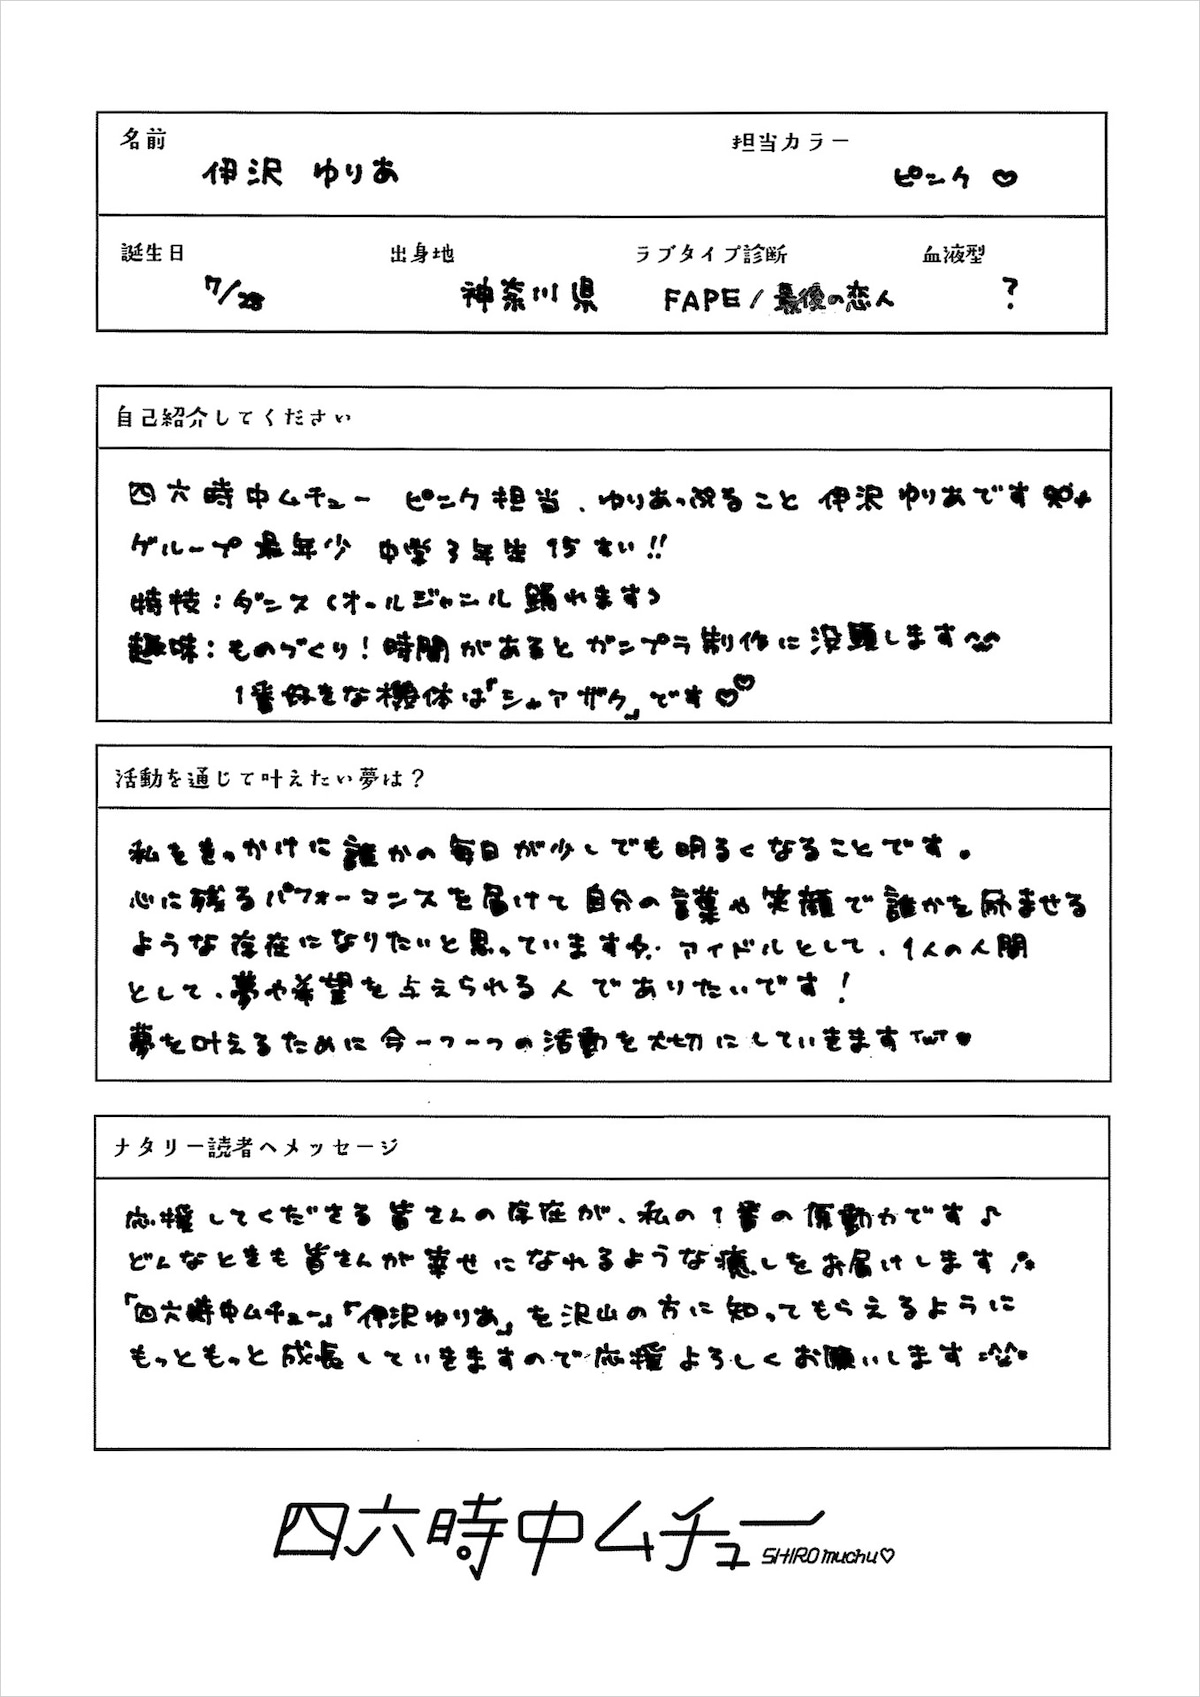 名前 担当カラー
伊沢 ゆりあ ピンク ♡
誕生日 出身地 ラブタイプ診断 血液型
7/28 神奈川県 FAPE / 最後の恋人 ?
自己紹介してください
四六時中ムチュー ピンク担当、ゆりあっぷること 伊沢ゆりあです
グループ最年少 中学3年生 15さい!!
特技:ダンス(オールジャンル踊れます)
趣味:ものづくり!時間があるとガンプラ制作に没頭します
1番好きな機体は「シャアザク」です♡♡
活動を通じて叶えたい夢は?
私をきっかけに誰かの毎日が少しでも明るくなることです。
心に残るパフォーマンスを届けて自分の言葉や笑顔で誰かを励ませる
ような存在になりたいと思っています アイドルとして、1人の人間
として、夢や希望を与えられる人でありたいです!
夢を叶えるために今一つ一つの活動を大切にしていきます TwT ♥
ナタリー読者へメッセージ
応援してくださる皆さんの存在が、私の1番の原動力です♪
どんなときも皆さんが幸せになれるような癒しをお届けします
「四六時中ムチュー」「伊沢ゆりあ」を沢山の方に知ってもらえるように
もっともっと成長していきますので応援よろしくお願いします
四六時中ムチュー SHIRO muchu♡